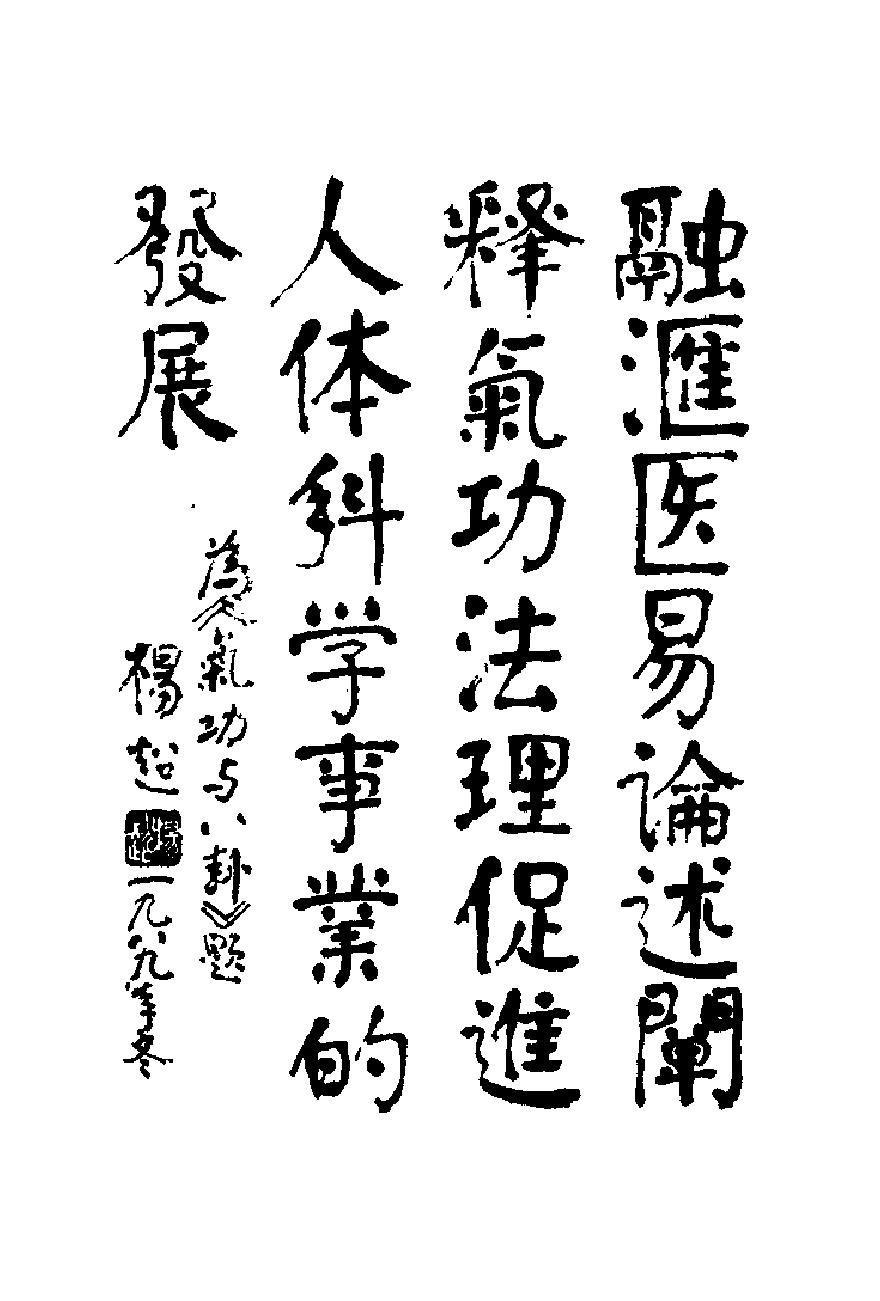 融滙医易論述闡
释氣功法理促進
人体科学事業的
發展
為《氣功与八卦》題
楊超
一九八九年冬